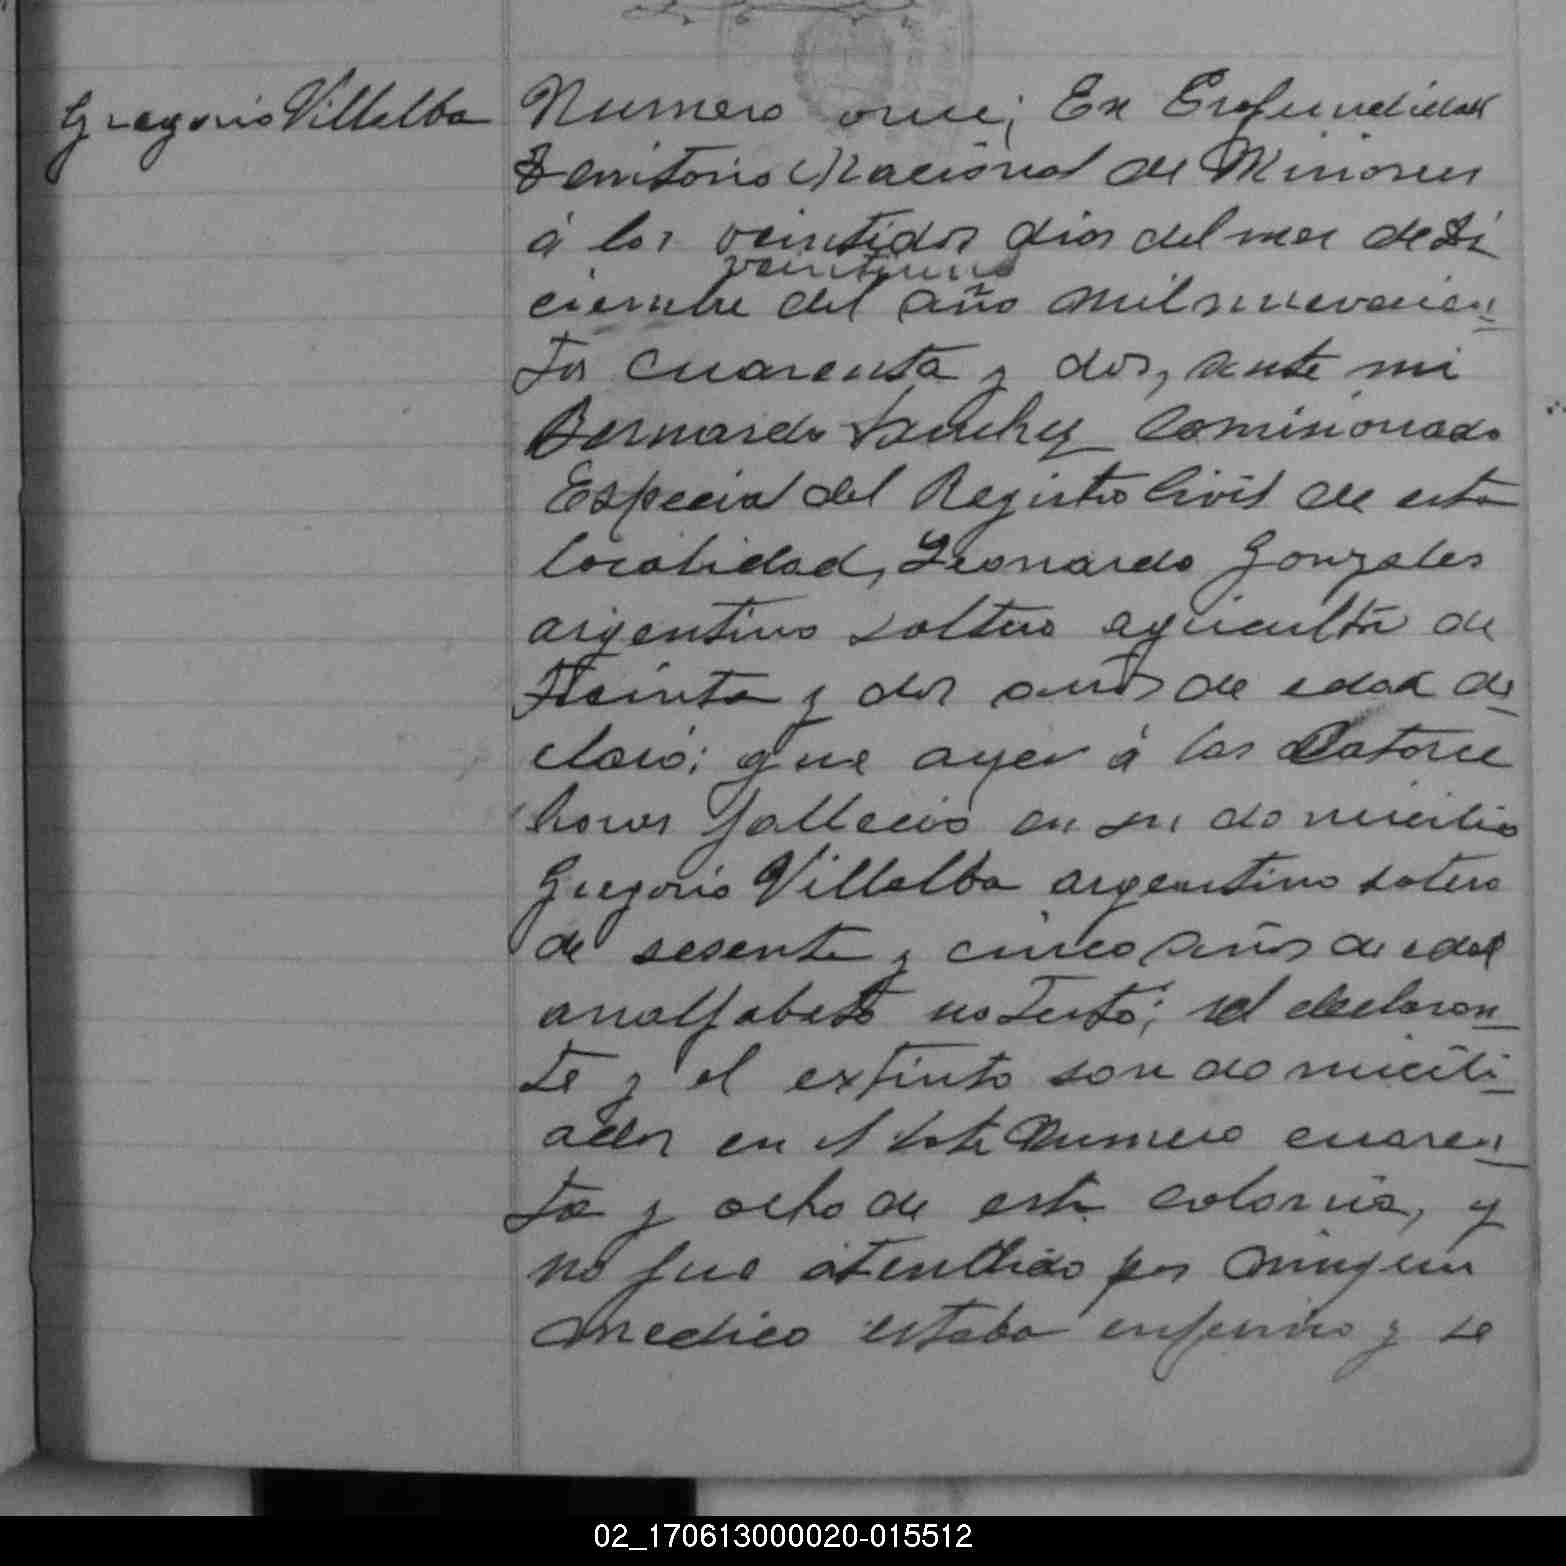 Gregorio Villalba
Numero once; En Profundidad
Territorio Nacional de Misiones
á los veintidos dias del mes de Di
veintiuno
ciembre del año mil novecien
tos cuarenta y dos, ante mi
Bernardo Sanchez Comisionado
Especial del Registro Civil de esta
localidad, Leonardo Gonzales
argentino soltero agricultor de
treinta y dos años de edad de
claró: que ayer á las Catorce
horas fallecio en su domicilio
Gregorio Villalba argentino sotero
de sesenta y cinco años de edad
analfabeto no testó; el declaran
te y el extinto son domicili
ados en el lote Numero cuaren
ta y ocho de esta colonia, y
no fue atendido por ningun
medico estaba enfermo y se
02_170613000020-015512